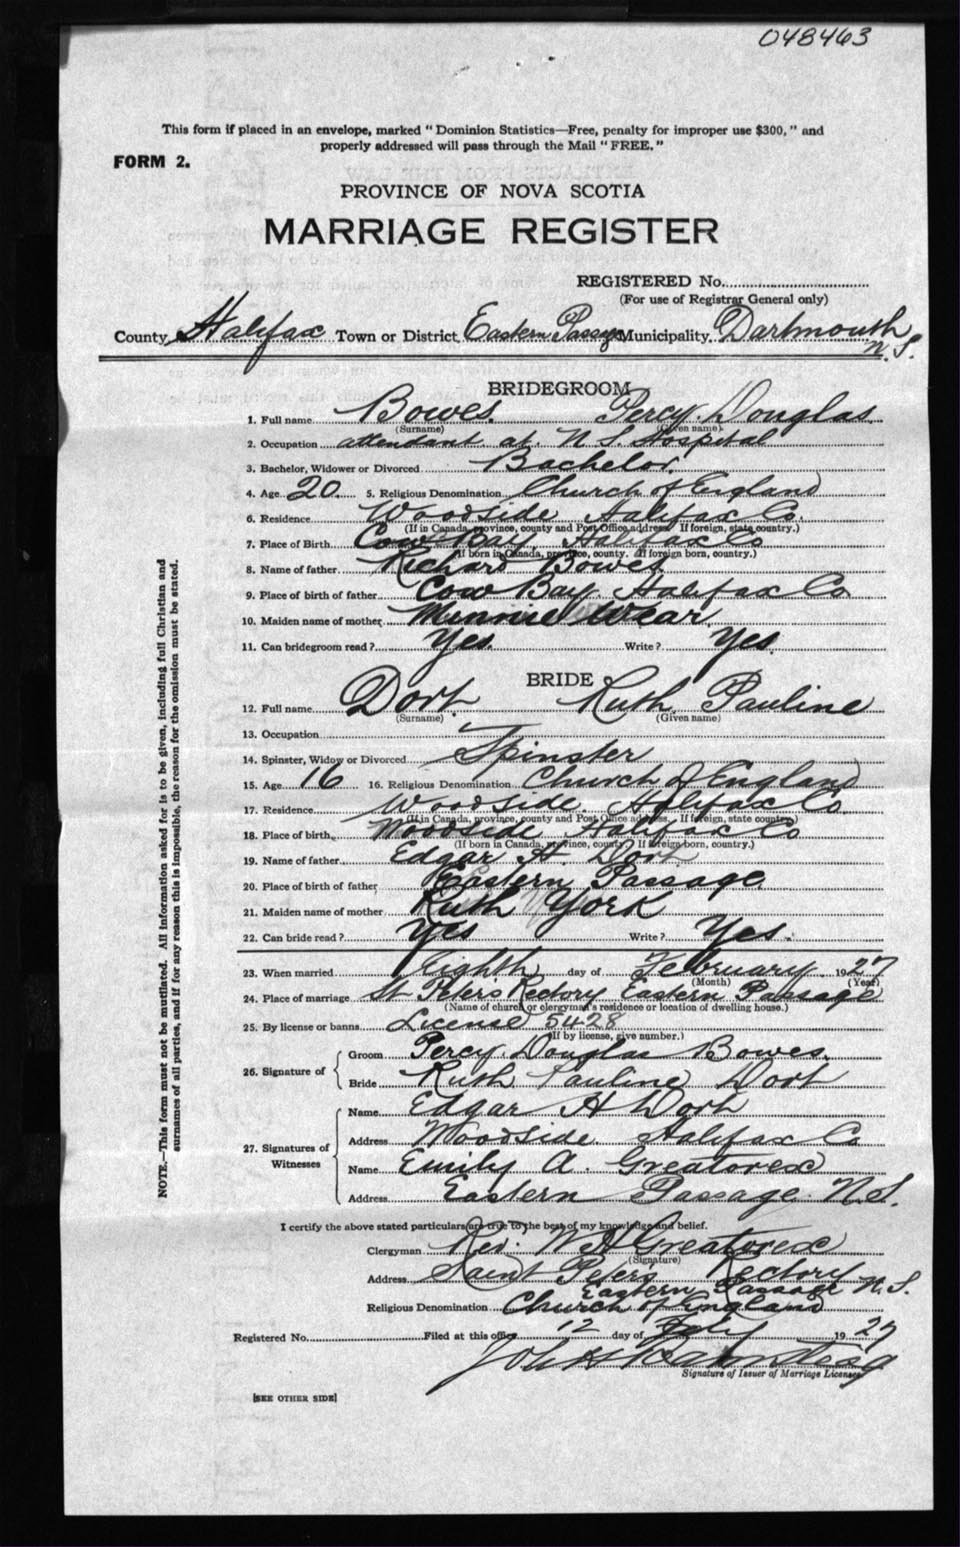 048463
This form if placed in an envelope, marked "Dominion Statistics—Free, penalty for improper use $300," and
properly addressed will pass through the Mail "FREE."
FORM 2.
PROVINCE OF NOVA SCOTIA
MARRIAGE REGISTER
REGISTERED No.
(For use of Registrar General only)
County Halifax Town or District Eastern Passage Municipality Dartmouth
N.S.
BRIDEGROOM
1. Full name Bowes. Percy Douglas
(Surname) (Given name)
2. Occupation attendant at N.S. Hospital
3. Bachelor, Widower or Divorced Bachelor.
4. Age 20. 5. Religious Denomination Church of England
6. Residence Woodside Halifax Co.
(If in Canada, province, county and Post Office address. If foreign, state country.)
7. Place of Birth Cow Bay Halifax Co
(If born in Canada, province, county. If foreign born, country.)
8. Name of father Richard Bowes
9. Place of birth of father Cow Bay Halifax Co
10. Maiden name of mother Minnie Wear.
11. Can bridegroom read? Yes. Write? Yes
BRIDE
12. Full name Dort. Ruth Pauline
(Surname) (Given name)
13. Occupation
14. Spinster, Widow or Divorced Spinster
15. Age 16 16. Religious Denomination Church of England
17. Residence Woodside Halifax Co
(If in Canada, province, county and Post Office address. If foreign, state country)
18. Place of birth Woodside Halifax Co
(If born in Canada, province, county. If foreign born, country.)
19. Name of father Edgar H Dort
20. Place of birth of father Eastern Passage
21. Maiden name of mother Ruth York
22. Can bride read? Yes Write? Yes.
23. When married Eighth day of February 1927
(Month) (Year)
24. Place of marriage St Peter's Rectory Eastern Passage
(Name of church or clergyman's residence or location of dwelling house.)
25. By license or banns License 5428
(If by license, give number.)
26. Signature of Groom Percy Douglas Bowes.
Bride Ruth Pauline Dort
27. Signatures of Witnesses Name Edgar H Dort
Address Woodside Halifax Co
Name Emily A. Greatorex
Address Eastern Passage N.S.
I certify the above stated particulars are true to the best of my knowledge and belief.
Clergyman Rev. W H Greatorex
(Signature)
Address Saint Peter's Rectory
Eastern Passage N.S.
Religious Denomination Church of England
Registered No. Filed at this office 12 day of 1927
Signature of Issuer of Marriage Licenses
[SEE OTHER SIDE]
NOTE.—This form must not be mutilated. All information asked for is to be given, including full Christian and
surnames of all parties, and if for any reason this is impossible, the reason for the omission must be stated.